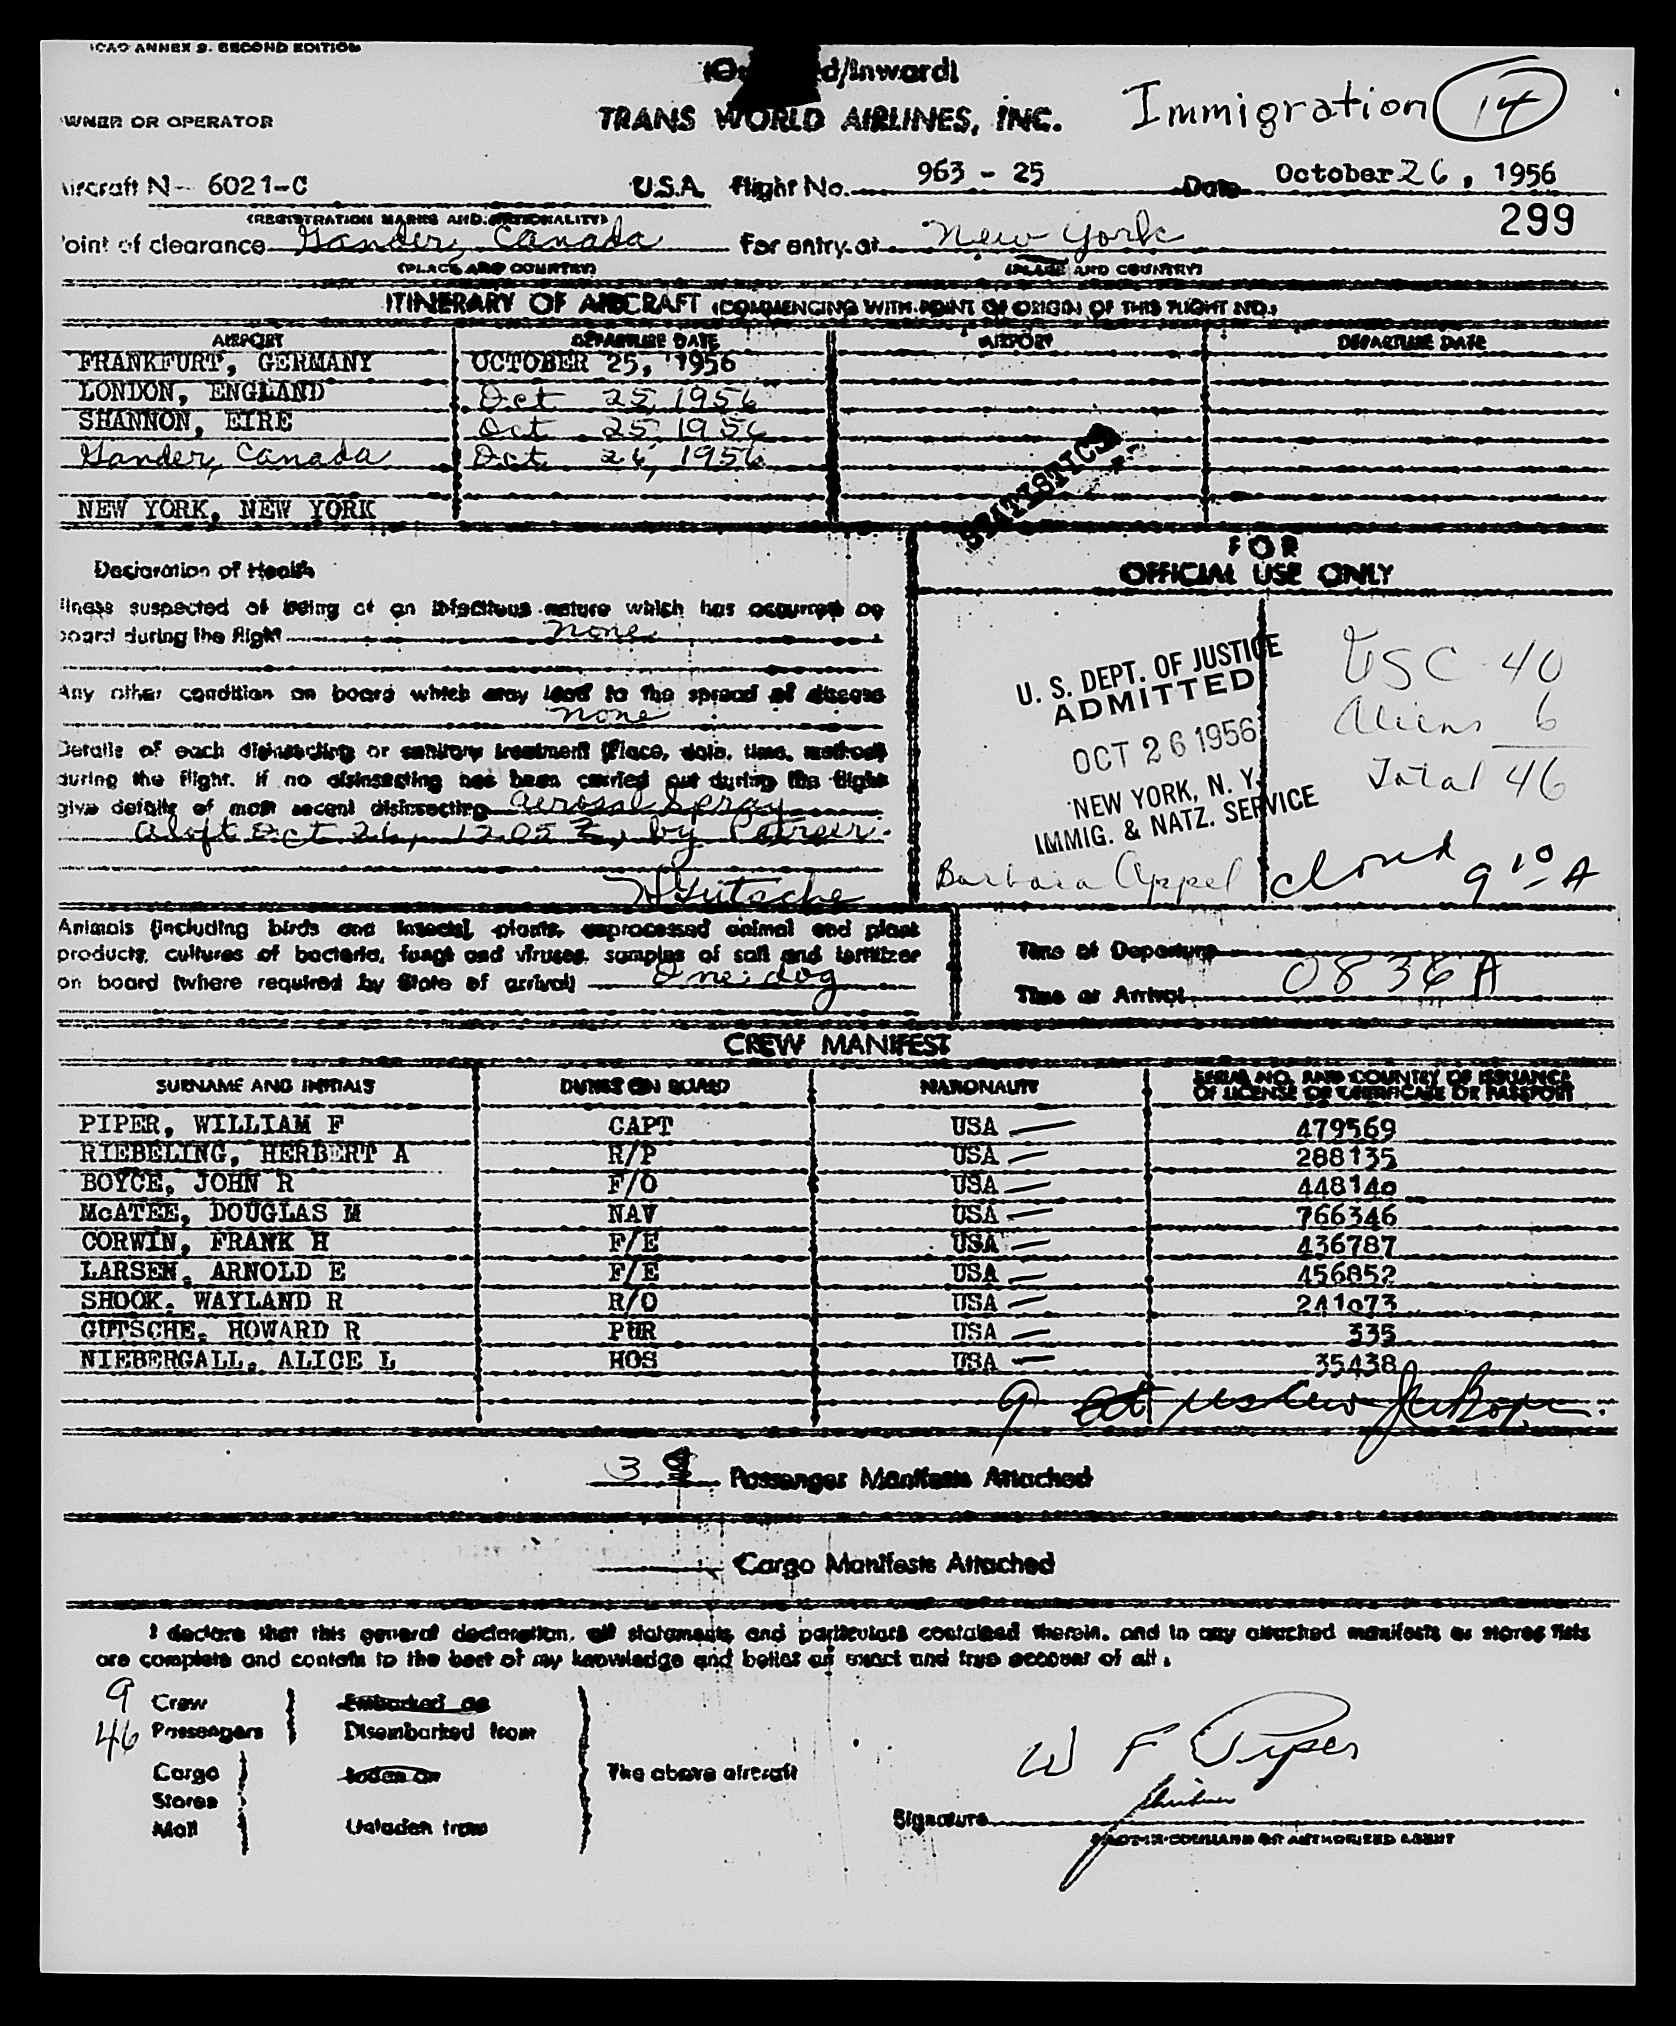 ICAO ANNEX 9. SECOND EDITION
d/Inward)
WNER OR OPERATOR
TRANS WORLD AIRLINES, INC.
Immigration 14
ircraft N- 6021-C U.S.A. flight No. 963 - 25 Date October 26, 1956
(REGISTRATION MARKS AND NATIONALITY)
299
oint of clearance Gander, Canada For entry at New York
(PLACE AND COUNTRY) (PLACE AND COUNTRY)
ITINERARY OF AIRCRAFT (COMMENCING WITH POINT OF ORIGIN OF THIS FLIGHT NO.)
AIRPORT DEPARTURE DATE AIRPORT DEPARTURE DATE
FRANKFURT, GERMANY OCTOBER 25, 1956
LONDON, ENGLAND Oct 25, 1956
SHANNON, EIRE Oct 25, 1956
Gander, Canada Oct 26, 1956
NEW YORK, NEW YORK
STATISTICS
Declaration of Health
llness suspected of being of an infectious nature which has occurred on
board during the flight none
Any other condition on board which may lead to the spread of disease
none
Details of each disinsecting or sanitary treatment (Place, date, time, method)
during the flight. If no disinsecting has been carried out during the flight
give details of most recent disinsecting Aerosol Spray
aloft Oct 26, 1205 Z, by Purser.
H Gutsche
FOR
OFFICIAL USE ONLY
U. S. DEPT. OF JUSTICE
ADMITTED
OCT 26 1956
NEW YORK, N. Y.
IMMIG. & NATZ. SERVICE
USC - 40
Aliens 6
Total 46
Barbara Appel
9 10 A
Animals (including birds and insects), plants, unprocessed animal and plant
products, cultures of bacteria, fungi and viruses, samples of soil and fertilizer
on board (where required by State of arrival) One dog
Time of Departure
Time of Arrival 0836A
CREW MANIFEST
SURNAME AND INITIALS DUTIES ON BOARD NATIONALITY SERIAL NO. AND COUNTRY OF ISSUANCE
OF LICENSE OR CERTIFICATE OR PASSPORT
PIPER, WILLIAM F CAPT USA 479569
RIEBELING, HERBERT A R/P USA 288135
BOYCE, JOHN R F/O USA 448140
McATEE, DOUGLAS M NAV USA 766346
CORWIN, FRANK H F/E USA 436787
LARSEN, ARNOLD E F/E USA 456852
SHOOK, WAYLAND R R/O USA 241073
GUTSCHE, HOWARD R PUR USA 335
NIEBERGALL, ALICE L HOS USA 35438
9
3 Passenger Manifests Attached
Cargo Manifests Attached
I declare that this general declaration, all statements and particulars contained therein, and in any attached manifests or stores lists
are complete and contain to the best of my knowledge and belief an exact and true account of all.
9 Crew Embarked on
46 Passengers Disembarked from
Cargo laden on The above aircraft
Stores
Mail Unladen from
W F Piper
Signature
PILOT-IN-COMMAND OR AUTHORIZED AGENT